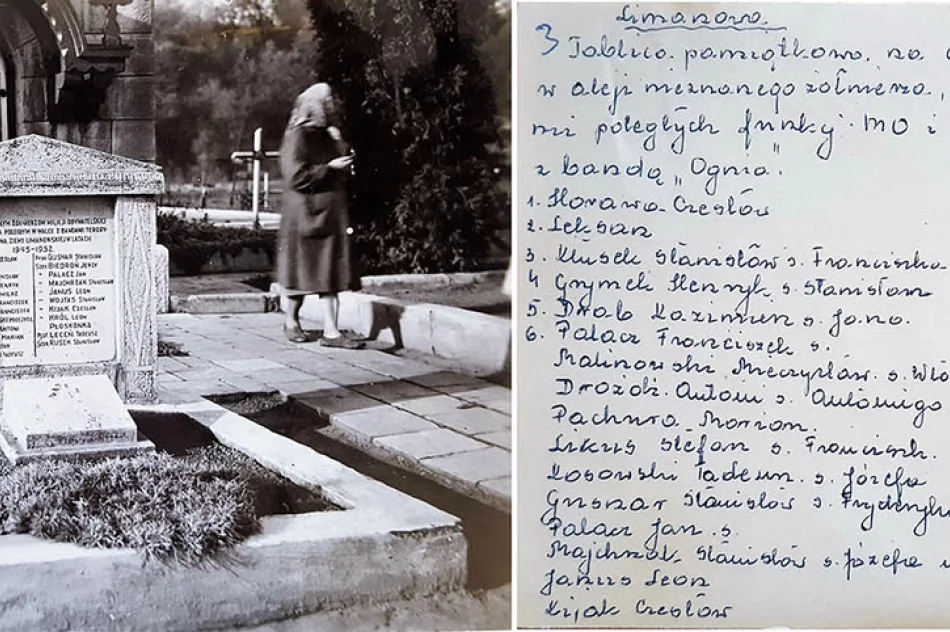 YM ŻOŁNIERZOM MILICJI OBYWATELSKIEJ
POLEGŁYM W WALCE Z BANDAMI TERORY
NA ZIEMI LIMANOWSKIEJ W LATACH
1945-1952.
GUSNAR STANISŁAW
BIEDROŃ JERZY
- PALACZ JAN
- MAJCHRZAK STANISŁAW
- JANUS LEON
- WOJTAS STANISŁAW
- KIJAK CZESŁAW
- KRÓL LEON
PŁOSKONKA
LECEŃ TADEUSZ
RUSEK STANISŁAW
ENRYK
ANTONI
MARIAN
TADEUSZ
Limanowa
3 Tablica pamiątkowa na
w alei nieznanego żołnierza
mi poległych funkcj MO i
z bandą „Ognia".
1. Horawa Czesław
2. Leksan
3. Musek Stanisław s. Franciszka
4 Grymek Henryk s. Stanisława
5. Dwala Kazimierz s. Jana.
6. Palacz Franciszek s.
Malinowski Mieczysław s. Wło
Drożdż Antoni s. Antoniego
Pachura Marian.
Lukus Stefan s. Franciszk.
Kosowski Tadeusz s. Józefa
Gusnar Stanisław s. Fryderyka
Palacz Jan s.
Majchrzak Stanisław s. Józefa
Janus Leon
Kijak Czesław